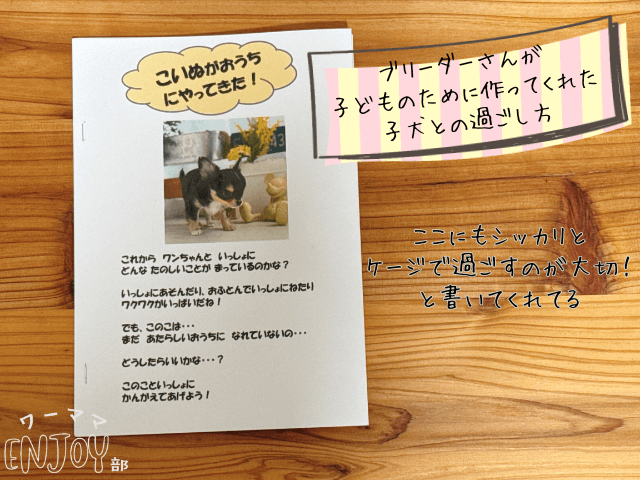 こいぬがおうち
にやってきた！
ブリーダーさんが
子どものために作ってくれた
子犬との過ごし方
これから ワンちゃんと いっしょに
どんな たのしいことが まっているのかな？
いっしょにあそんだり、おふとんでいっしょにねたり
ワクワクがいっぱいだね！
でも、このこは・・・
まだ あたらしいおうちに なれていないの・・・
どうしたらいいかな・・・？
このこといっしょに
かんがえてあげよう！
ここにもシッカリと
ケージで過ごすのが大切！
と書いてくれてる
ワーママ
ENJOY部